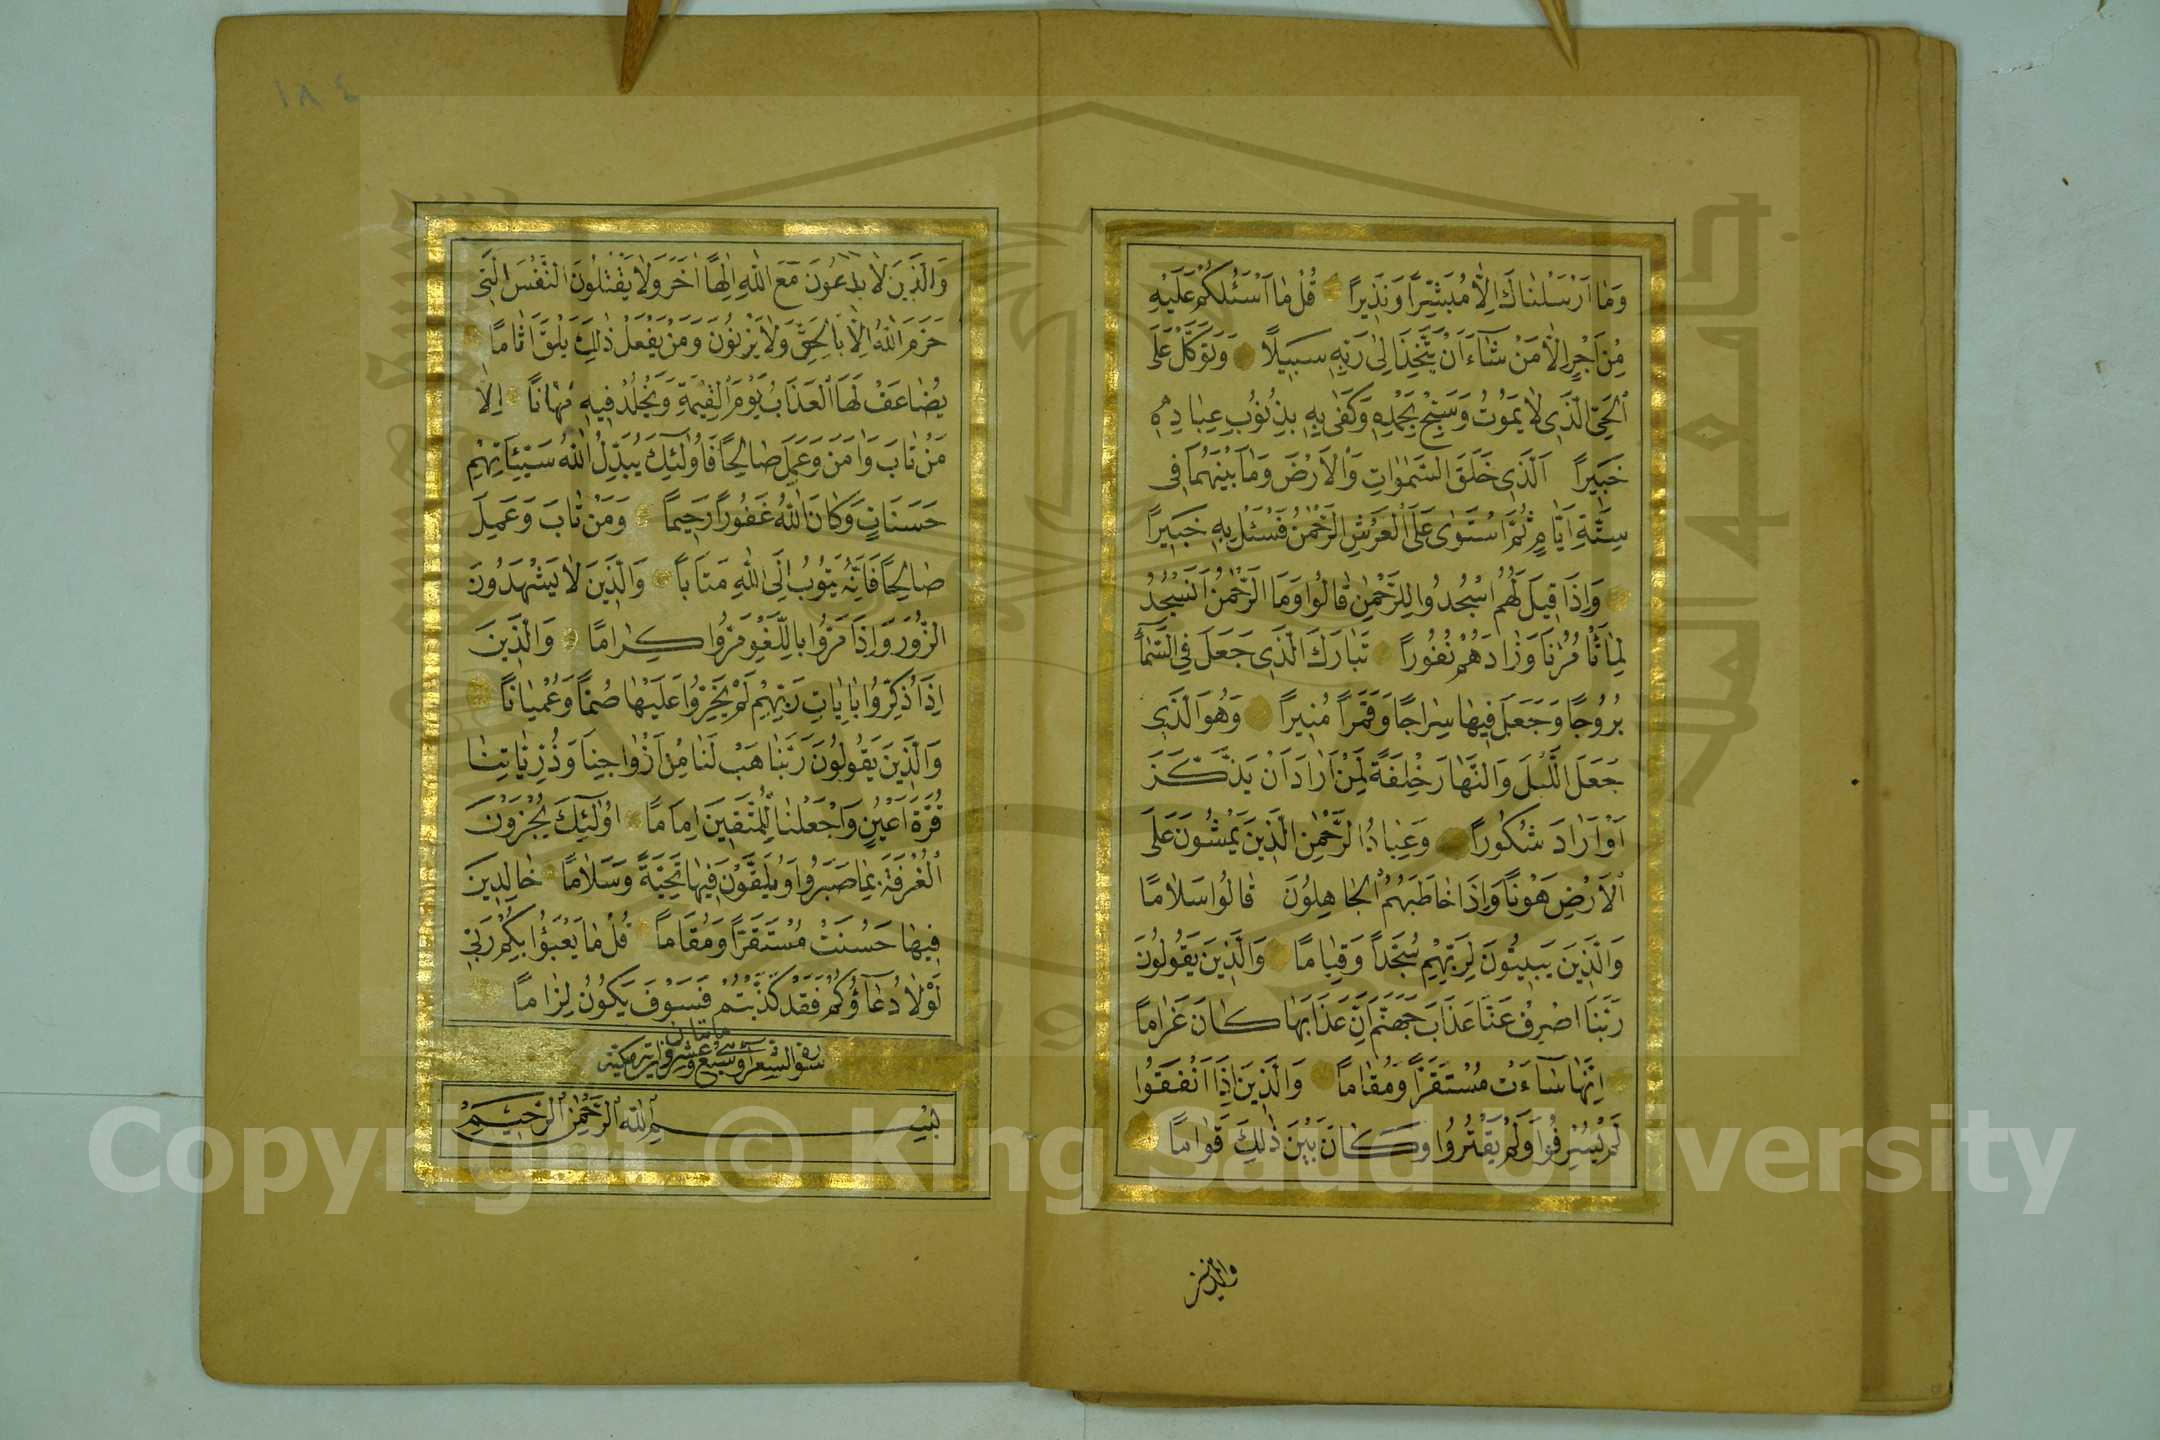 وَمَا اَرْسَلْنَاكَ اِلَّا مُبَشِّرًا وَنَذِيرًا قُلْ مَا اَسْئَلُكُمْ عَلَيْهِ
مِنْ اَجْرٍ اِلَّا مَنْ شَآءَ اَنْ يَتَّخِذَ اِلٰى رَبِّهِ سَبِيلًا وَتَوَكَّلْ عَلَى
الْحَيِّ الَّذِى لَا يَمُوتُ وَسَبِّحْ بِحَمْدِهِ وَكَفٰى بِهِ بِذُنُوبِ عِبَادِهِ
خَبِيرًا اَلَّذِى خَلَقَ السَّمٰوَاتِ وَالْاَرْضَ وَمَا بَيْنَهُمَا فِى
سِتَّةِ اَيَّامٍ ثُمَّ اسْتَوٰى عَلَى الْعَرْشِ الرَّحْمٰنُ فَسْئَلْ بِهِ خَبِيرًا
وَاِذَا قِيلَ لَهُمُ اسْجُدُوا لِلرَّحْمٰنِ قَالُوا وَمَا الرَّحْمٰنُ اَنَسْجُدُ
لِمَا تَأْمُرُنَا وَزَادَهُمْ نُفُورًا تَبَارَكَ الَّذِى جَعَلَ فِى السَّمَآءِ
بُرُوجًا وَجَعَلَ فِيهَا سِرَاجًا وَقَمَرًا مُنِيرًا وَهُوَ الَّذِى
جَعَلَ الَّيْلَ وَالنَّهَارَ خِلْفَةً لِمَنْ اَرَادَ اَنْ يَذَّكَّرَ
اَوْ اَرَادَ شُكُورًا وَعِبَادُ الرَّحْمٰنِ الَّذِينَ يَمْشُونَ عَلَى
الْاَرْضِ هَوْنًا وَاِذَا خَاطَبَهُمُ الْجَاهِلُونَ قَالُوا سَلَامًا
وَالَّذِينَ يَبِيتُونَ لِرَبِّهِمْ سُجَّدًا وَقِيَامًا وَالَّذِينَ يَقُولُونَ
رَبَّنَا اصْرِفْ عَنَّا عَذَابَ جَهَنَّمَ اِنَّ عَذَابَهَا كَانَ غَرَامًا
اِنَّهَا سَآءَتْ مُسْتَقَرًّا وَمُقَامًا وَالَّذِينَ اِذَا اَنْفَقُوا
لَمْ يُسْرِفُوا وَلَمْ يَقْتُرُوا وَكَانَ بَيْنَ ذٰلِكَ قَوَامًا
والذين
١٨٤
وَالَّذِينَ لَا يَدْعُونَ مَعَ اللّٰهِ اِلٰهًا اٰخَرَ وَلَا يَقْتُلُونَ النَّفْسَ الَّتِى
حَرَّمَ اللّٰهُ اِلَّا بِالْحَقِّ وَلَا يَزْنُونَ وَمَنْ يَفْعَلْ ذٰلِكَ يَلْقَ اَثَامًا
يُضَاعَفْ لَهُ الْعَذَابُ يَوْمَ الْقِيٰمَةِ وَيَخْلُدْ فِيهِ مُهَانًا اِلَّا
مَنْ تَابَ وَاٰمَنَ وَعَمِلَ صَالِحًا فَاُولٰٓئِكَ يُبَدِّلُ اللّٰهُ سَيِّئَاتِهِمْ
حَسَنَاتٍ وَكَانَ اللّٰهُ غَفُورًا رَحِيمًا وَمَنْ تَابَ وَعَمِلَ
صَالِحًا فَاِنَّهُ يَتُوبُ اِلَى اللّٰهِ مَتَابًا وَالَّذِينَ لَا يَشْهَدُونَ
الزُّورَ وَاِذَا مَرُّوا بِاللَّغْوِ مَرُّوا كِرَامًا وَالَّذِينَ
اِذَا ذُكِّرُوا بِاٰيَاتِ رَبِّهِمْ لَمْ يَخِرُّوا عَلَيْهَا صُمًّا وَعُمْيَانًا
وَالَّذِينَ يَقُولُونَ رَبَّنَا هَبْ لَنَا مِنْ اَزْوَاجِنَا وَذُرِّيَّاتِنَا
قُرَّةَ اَعْيُنٍ وَاجْعَلْنَا لِلْمُتَّقِينَ اِمَامًا اُولٰٓئِكَ يُجْزَوْنَ
الْغُرْفَةَ بِمَا صَبَرُوا وَيُلَقَّوْنَ فِيهَا تَحِيَّةً وَسَلَامًا خَالِدِينَ
فِيهَا حَسُنَتْ مُسْتَقَرًّا وَمُقَامًا قُلْ مَا يَعْبَؤُا بِكُمْ رَبِّى
لَوْلَا دُعَآؤُكُمْ فَقَدْ كَذَّبْتُمْ فَسَوْفَ يَكُونُ لِزَامًا
سورة الشعرآء مائتان وسبع وعشرون آية مكية
بِسْمِ اللّٰهِ الرَّحْمٰنِ الرَّحِيمِ
Copyright © King Saud University